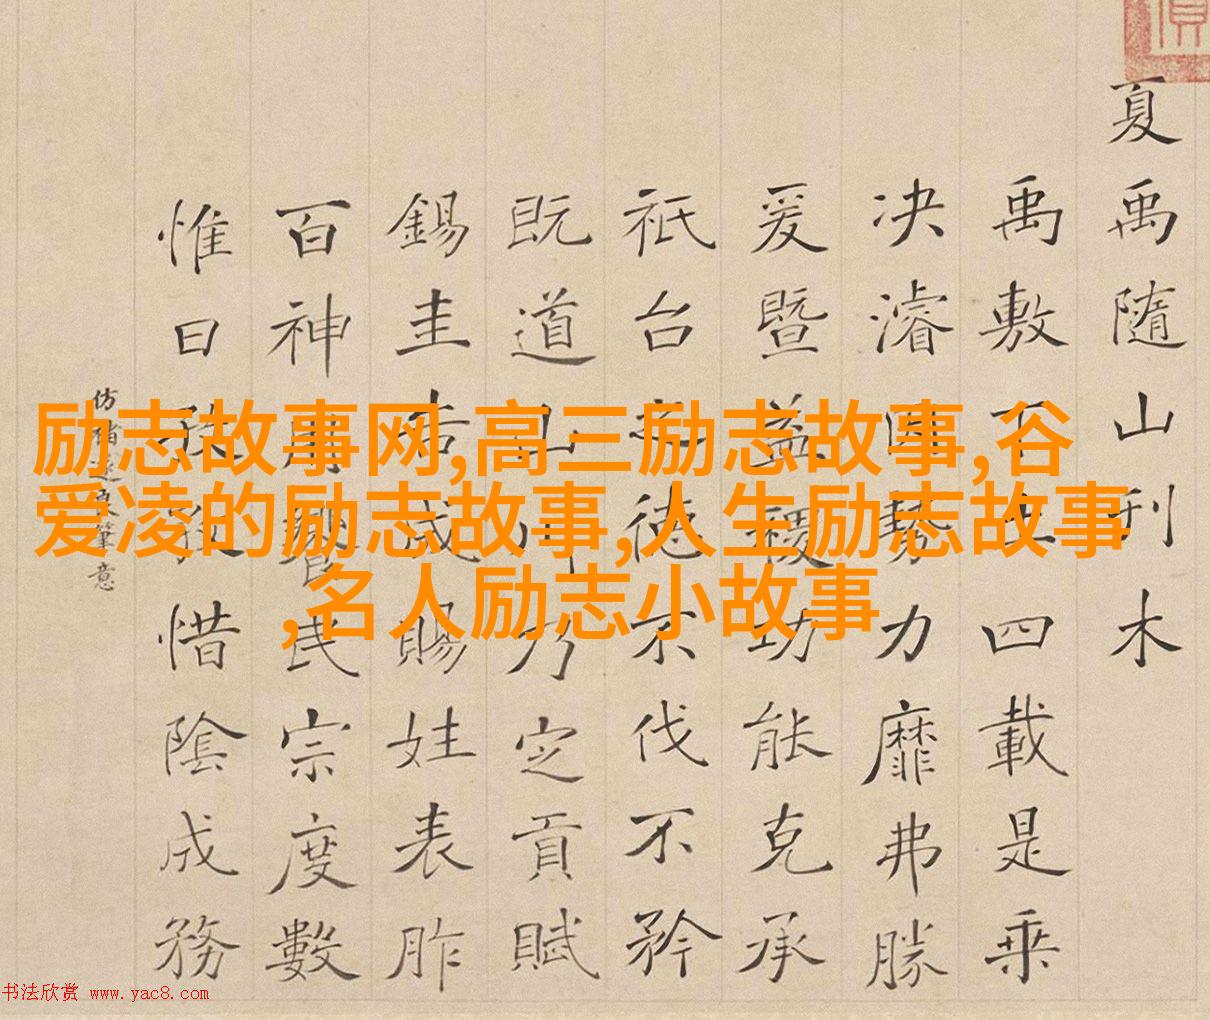 夏禹隨山刊木
禹敷下土四載是乘
决濬因勢力靡弗勝
爰暨益稷功能克承
祇台先德不伐不矜
既道山川乃定貢賦
錫圭告成賜姓表胙
百神 民宗度數
惟日孜孜惜陰成務
仿褚遂良筆意
励志故事网,高三励志故事,谷
爱凌的励志故事,人生励志故事
,名人励志小故事
书法欣赏 www.yac8.com